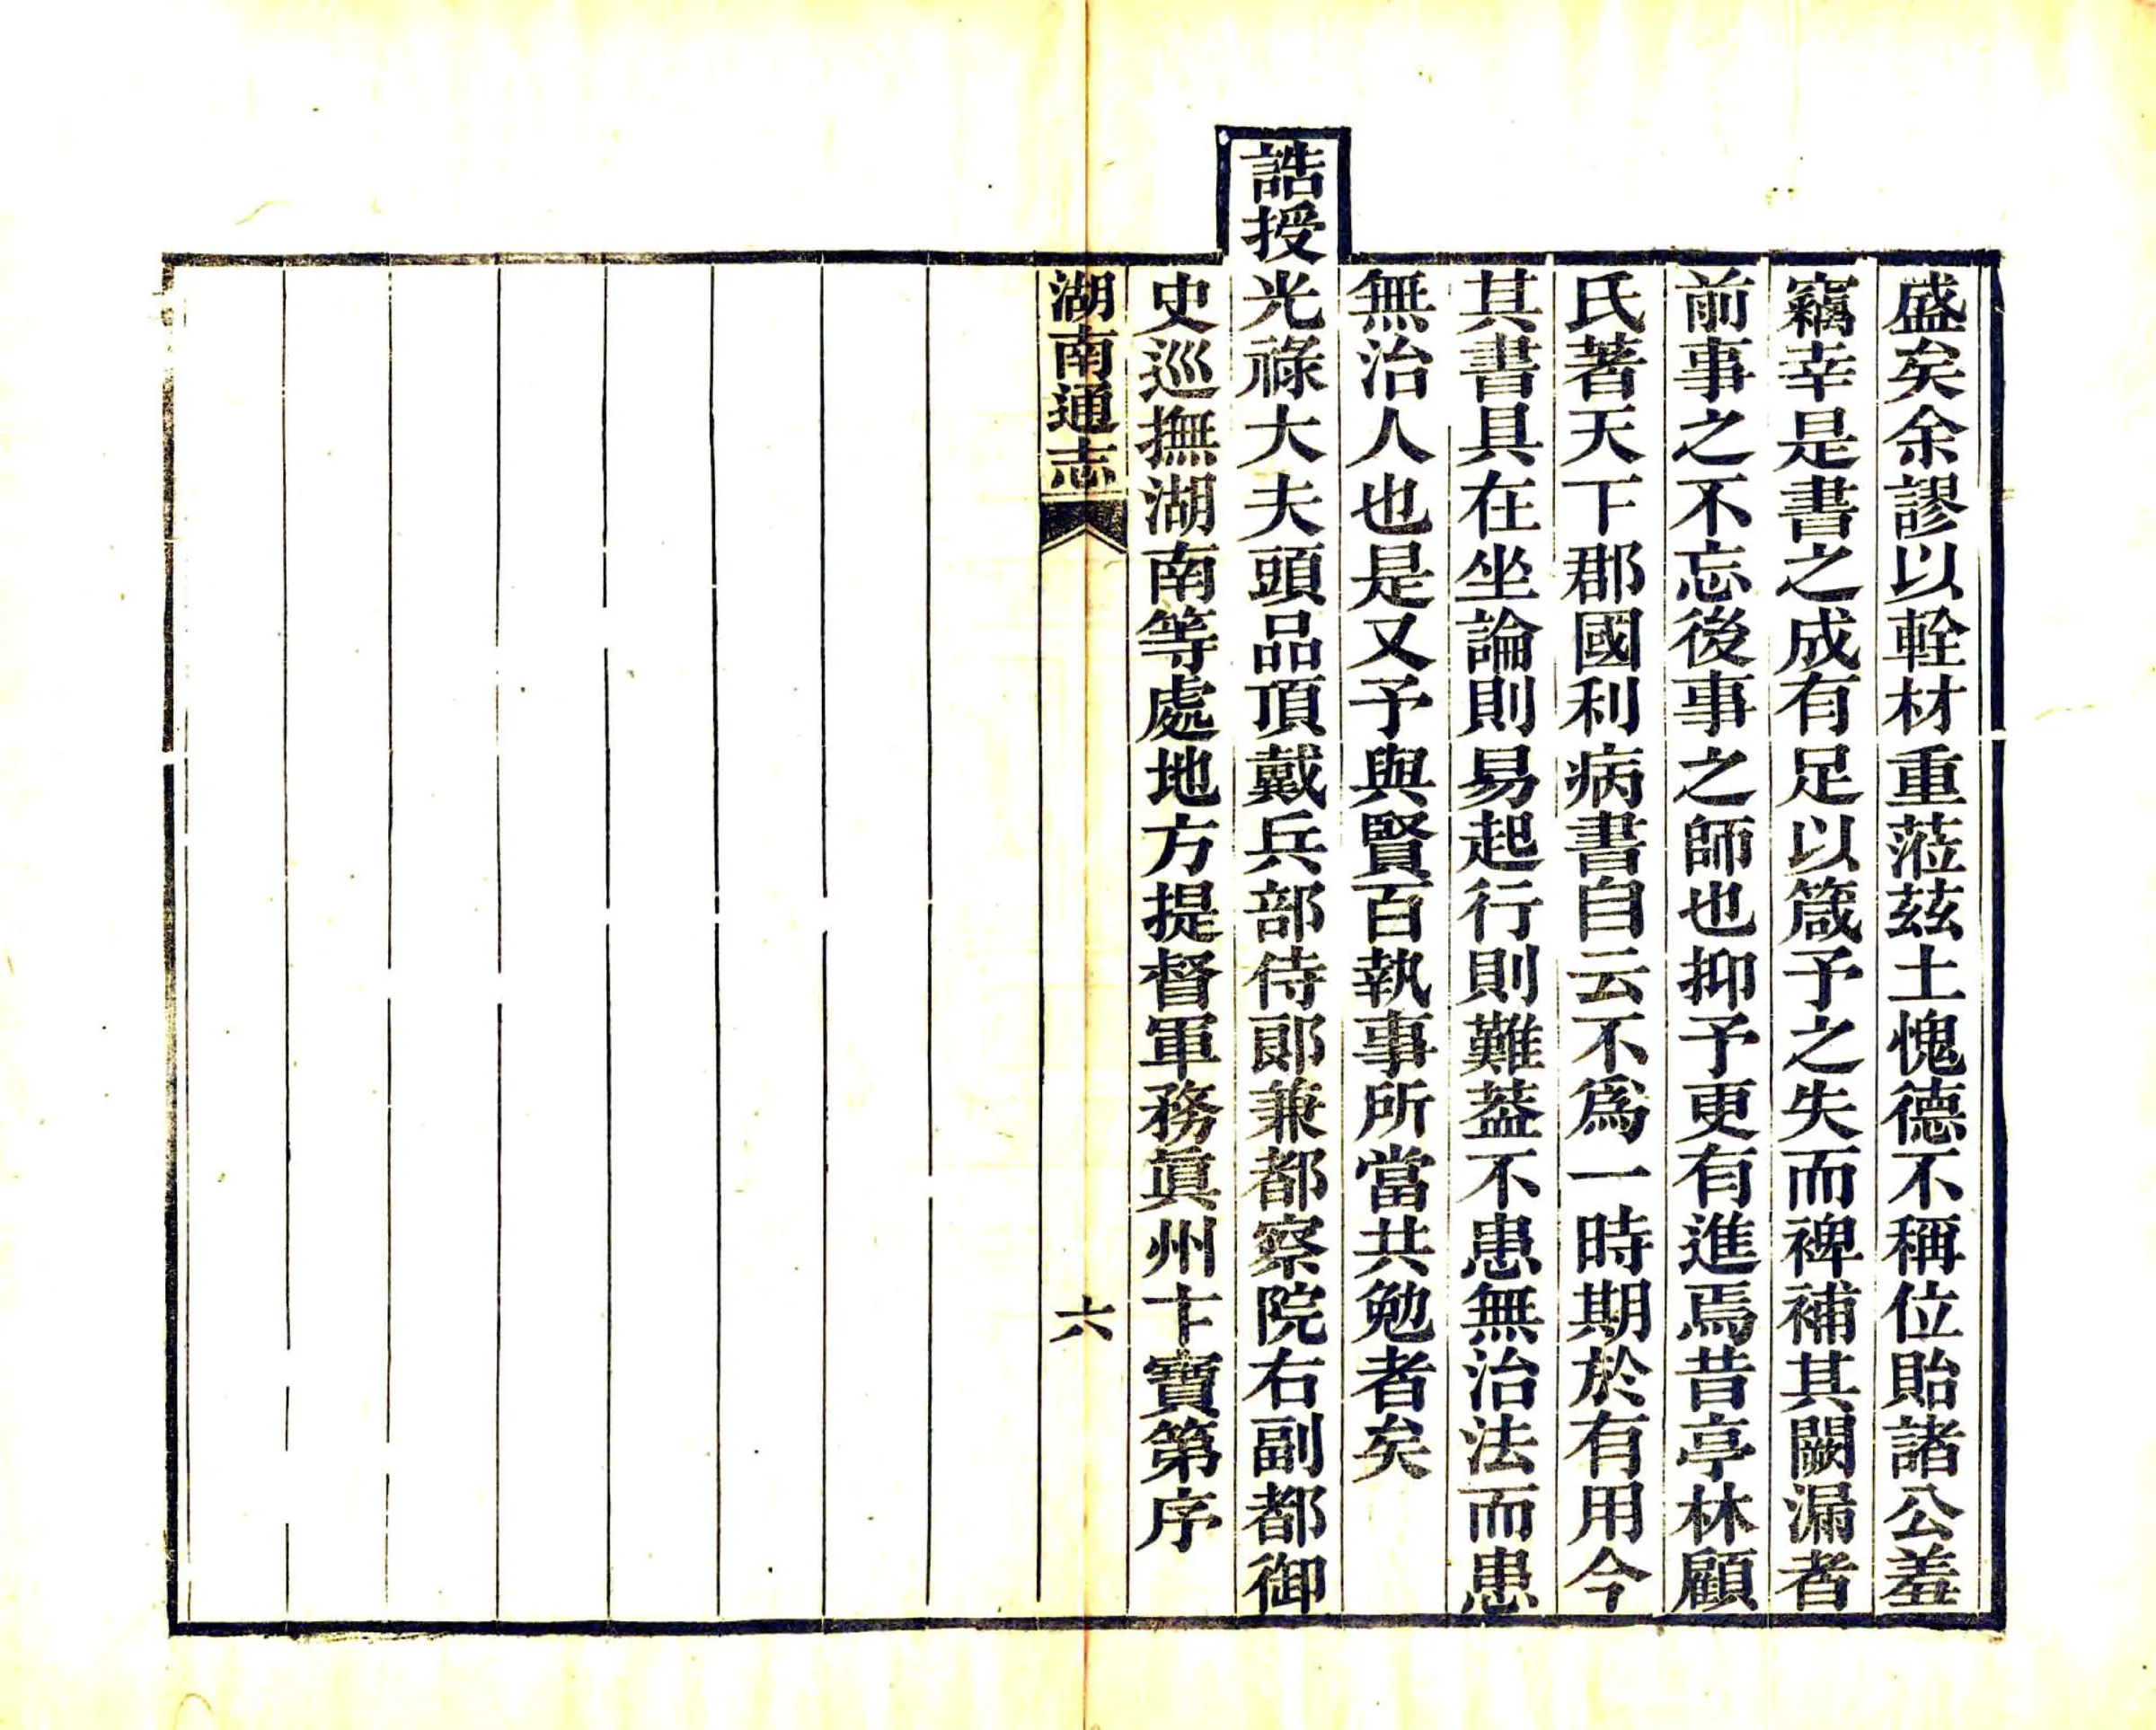 盛矣余謬以輇材重蒞茲土愧德不稱位貽諸公羞
竊幸是書之成有足以箴予之失而裨補其闕漏者
前事之不忘後事之師也抑予更有進焉昔亭林顧
氏著天下郡國利病書自云不爲一時期於有用今
其書具在坐論則易起行則難葢不患無治法而患
無治人也是又予與賢百執事所當共勉者矣
誥授光祿大夫頭品頂戴兵部侍郎兼都察院右副都御
史巡撫湖南等處地方提督軍務眞州卞寶第序
湖南通志
六